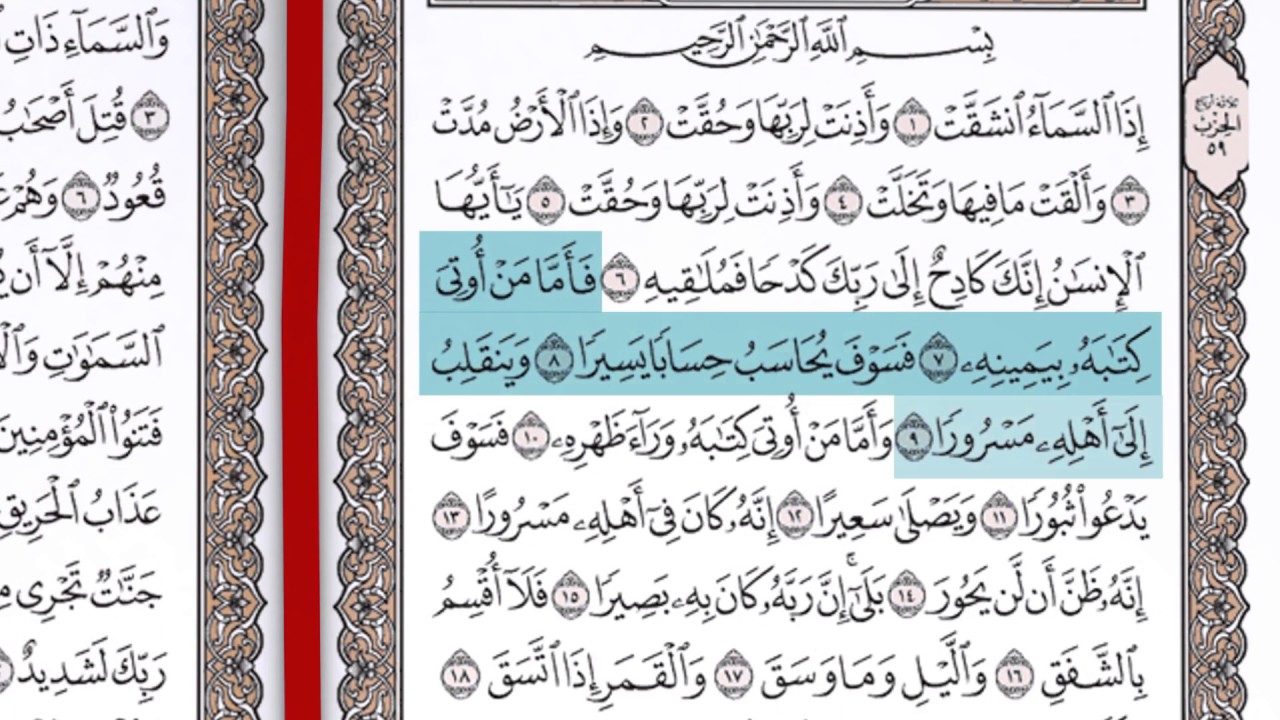 بِسْمِ ٱللَّهِ ٱلرَّحْمَٰنِ ٱلرَّحِيمِ
إِذَا ٱلسَّمَآءُ ٱنشَقَّتْ ١ وَأَذِنَتْ لِرَبِّهَا وَحُقَّتْ ٢ وَإِذَا ٱلْأَرْضُ مُدَّتْ
٣ وَأَلْقَتْ مَا فِيهَا وَتَخَلَّتْ ٤ وَأَذِنَتْ لِرَبِّهَا وَحُقَّتْ ٥ يَٰٓأَيُّهَا
ٱلْإِنسَٰنُ إِنَّكَ كَادِحٌ إِلَىٰ رَبِّكَ كَدْحًا فَمُلَٰقِيهِ ٦ فَأَمَّا مَنْ أُوتِىَ
كِتَٰبَهُۥ بِيَمِينِهِۦ ٧ فَسَوْفَ يُحَاسَبُ حِسَابًا يَسِيرًا ٨ وَيَنقَلِبُ
إِلَىٰٓ أَهْلِهِۦ مَسْرُورًا ٩ وَأَمَّا مَنْ أُوتِىَ كِتَٰبَهُۥ وَرَآءَ ظَهْرِهِۦ ١٠ فَسَوْفَ
يَدْعُوا۟ ثُبُورًا ١١ وَيَصْلَىٰ سَعِيرًا ١٢ إِنَّهُۥ كَانَ فِىٓ أَهْلِهِۦ مَسْرُورًا ١٣
إِنَّهُۥ ظَنَّ أَن لَّن يَحُورَ ١٤ بَلَىٰٓۚ إِنَّ رَبَّهُۥ كَانَ بِهِۦ بَصِيرًا ١٥ فَلَآ أُقْسِمُ
بِٱلشَّفَقِ ١٦ وَٱلَّيْلِ وَمَا وَسَقَ ١٧ وَٱلْقَمَرِ إِذَا ٱتَّسَقَ ١٨
ثلاثة أرباع
الحزب
٥٩
وَٱلسَّمَآءِ ذَاتِ
٣ قُتِلَ أَصْحَٰبُ
قُعُودٌ ٦ وَهُمْ
مِنْهُمْ إِلَّآ أَن
ٱلسَّمَٰوَٰتِ
فَتَنُوا۟ ٱلْمُؤْمِنِينَ
عَذَابُ ٱلْحَرِيقِ
جَنَّٰتٌ تَجْرِى
رَبِّكَ لَشَدِيدٌ